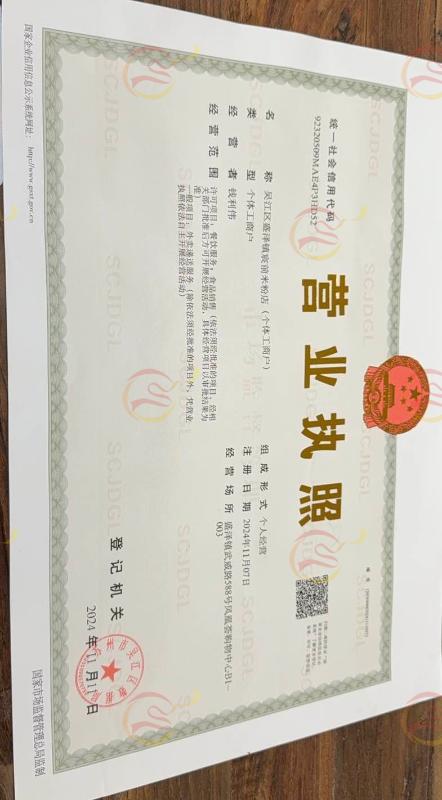 统一社会信用代码
92320509MAE4P3HD52
营业执照
名称 吴江区盛泽镇宸前米粉店（个体工商户）
类型 个体工商户
经营者 钱利伟
经营范围 许可项目：餐饮服务；食品销售（依法须经批准的项目，经相
关部门批准后方可开展经营活动，具体经营项目以审批结果为
准）
一般项目：外卖递送服务（除依法须经批准的项目外，凭营业
执照依法自主开展经营活动）
组成形式 个人经营
注册日期 2024年11月07日
经营场所 盛泽镇武威路588号凤凰荟购物中心B1-
003
登记机关
2024 年 11 月 11 日
国家企业信用信息公示系统网址： http://www.gsxt.gov.cn
国家市场监督管理总局监制
SCJDGL